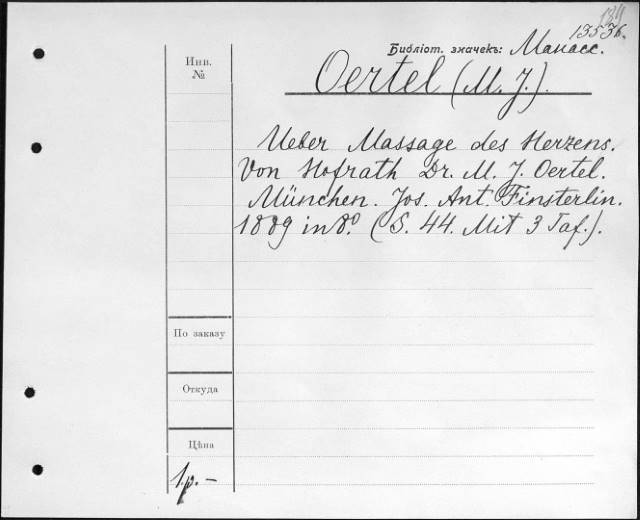 13536.
Библіот. значекъ: Манасс.
Инв.
№
Oertel (M. J.).
Ueber Massage des Herzens.
Von Hofrath Dr. M. J. Oertel.
München. Jos. Ant. Finsterlin.
1889 in 8º. (S. 44. Mit 3 Taf.).
По заказу
Откуда
Цѣна
1 р. –